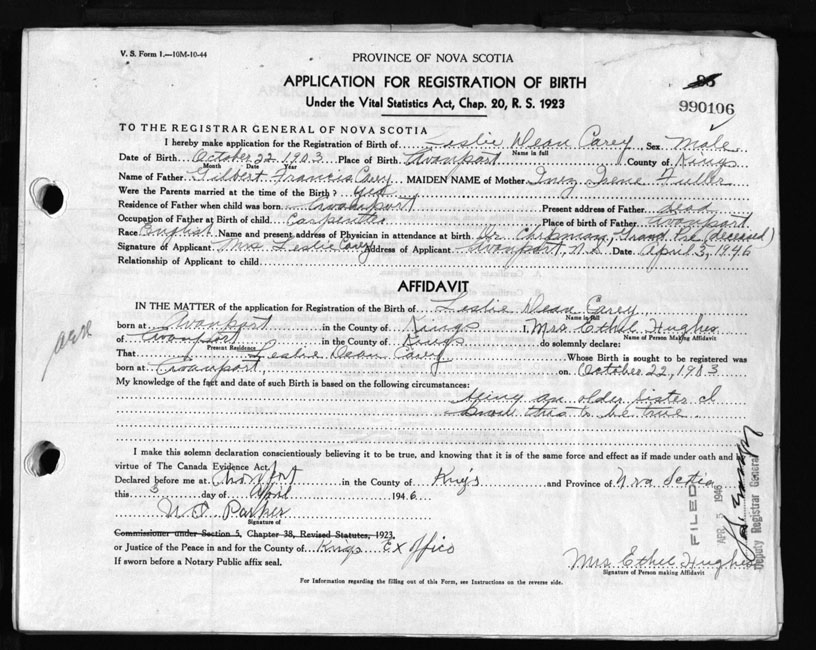 V. S. Form 1.—10M-10-44
PROVINCE OF NOVA SCOTIA
APPLICATION FOR REGISTRATION OF BIRTH
Under the Vital Statistics Act, Chap. 20, R. S. 1923
990106
TO THE REGISTRAR GENERAL OF NOVA SCOTIA
I hereby make application for the Registration of Birth of Leslie Dean Carey Sex Male
Name in full
Date of Birth October 22 1903 Place of Birth Avonport County of Kings
Month Date Year
Name of Father Gilbert Francis Carey MAIDEN NAME of Mother Inez Irene Fuller
Were the Parents married at the time of the Birth? yes
Residence of Father when child was born Avonport Present address of Father dead
Occupation of Father at Birth of child Carpenter Place of birth of Father Avonport
Race English Name and present address of Physician in attendance at birth Dr. Chipman, Grand Pre (deceased)
Signature of Applicant Mrs Leslie Carey Address of Applicant Avonport, N.S. Date April 3, 1946
Relationship of Applicant to child
AFFIDAVIT
IN THE MATTER of the application for Registration of the Birth of Leslie Dean Carey
Name in full
born at Avonport in the County of Kings I, Mrs Ethel Hughes
Name of Person Making Affidavit
of Avonport in the County of Kings do solemnly declare:
Present Residence
That Leslie Dean Carey Whose Birth is sought to be registered was
born at Avonport, on October 22, 1903
My knowledge of the fact and date of such Birth is based on the following circumstances:
Being an older sister I
know this to be true
I make this solemn declaration conscientiously believing it to be true, and knowing that it is of the same force and effect as if made under oath and by
virtue of The Canada Evidence Act.
Declared before me at Avonport in the County of Kings and Province of Nova Scotia
this 3 day of April 1946
Parker
Signature of
Commissioner under Section 5, Chapter 38, Revised Statutes, 1923,
or Justice of the Peace in and for the County of Kings Ex Officio
If sworn before a Notary Public affix seal.
Mrs Ethel Hughes
Signature of Person making Affidavit
For Information regarding the filling out of this Form, see Instructions on the reverse side.
FILED
APR 5 1946
Deputy Registrar General